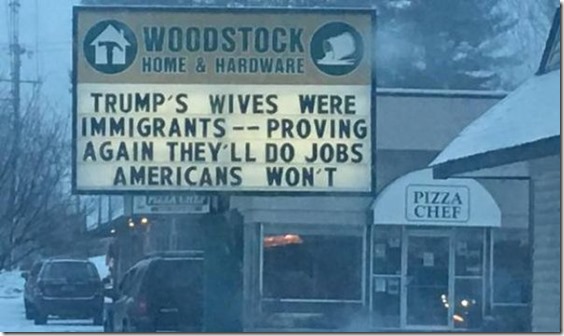 WOODSTOCK
HOME & HARDWARE
TRUMP'S WIVES WERE
IMMIGRANTS -- PROVING
AGAIN THEY'LL DO JOBS
AMERICANS WON'T
PIZZA CHEF
PIZZA
CHEF